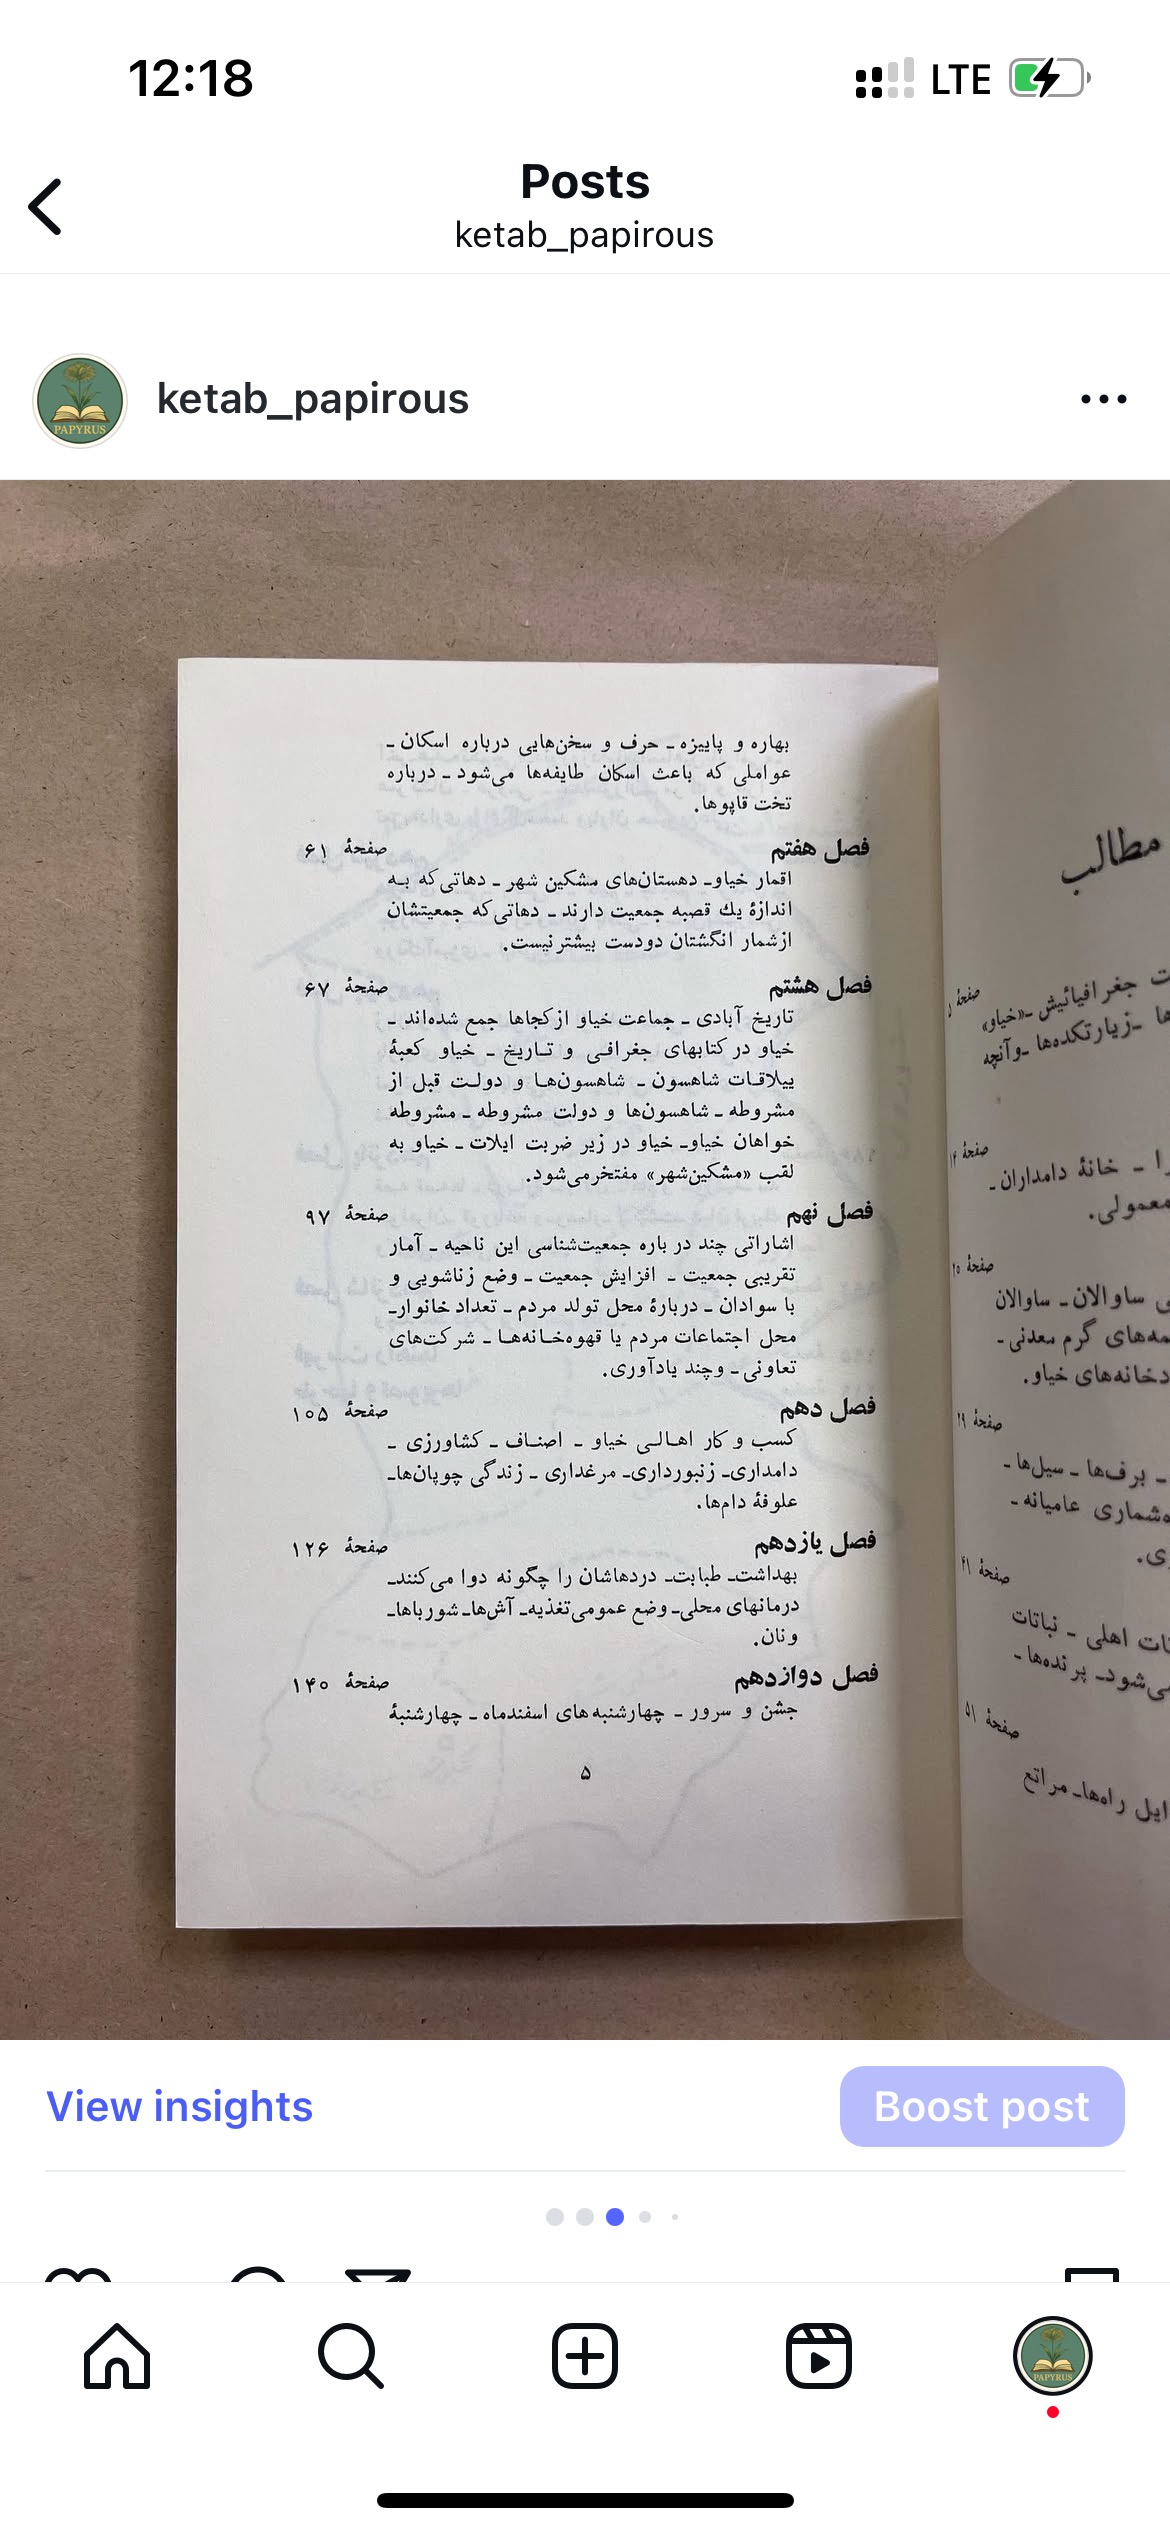 12:18
LTE
Posts
ketab_papirous
ketab_papirous
PAPYRUS
مطالب
صفحهٔ
جغرافیائیش ـ «خیاو»
ـ زیارتکده‌ها ـ و آنچه
صفحهٔ ۱۴
ـ خانهٔ دامداران ـ
معمولی.
صفحهٔ ۲۵
ساوالان ـ ساوالان
گرم معدنی ـ
خیاو.
صفحهٔ ۲۹
ـ برف‌ها ـ سیل‌ها ـ
عامیانه ـ
صفحهٔ ۴۱
اهلی ـ نباتات
پرنده‌ها ـ
صفحهٔ ۵۱
راه‌ها ـ مراتع
بهاره و پاییزه ـ حرف و سخن‌هایی درباره اسکان ـ
عواملی که باعث اسکان طایفه‌ها می‌شود ـ درباره
تخت قاپوها.
فصل هفتم صفحهٔ ۶۱
اقمار خیاو ـ دهستان‌های مشکین شهر ـ دهاتی که به
اندازهٔ یك قصبه جمعیت دارند ـ دهاتی که جمعیتشان
از شمار انگشتان دو دست بیشتر نیست.
فصل هشتم صفحهٔ ۶۷
تاریخ آبادی ـ جماعت خیاو از کجاها جمع شده‌اند ـ
خیاو در کتابهای جغرافی و تاریخ ـ خیاو کعبهٔ
ییلاقات شاهسون ـ شاهسون‌ها و دولت قبل از
مشروطه ـ شاهسون‌ها و دولت مشروطه ـ مشروطه
خواهان خیاو ـ خیاو در زیر ضربت ایلات ـ خیاو به
لقب «مشکین‌شهر» مفتخر می‌شود.
فصل نهم صفحهٔ ۹۷
اشاراتی چند در باره جمعیت‌شناسی این ناحیه ـ آمار
تقریبی جمعیت ـ افزایش جمعیت ـ وضع زناشویی و
با سوادان ـ دربارهٔ محل تولد مردم ـ تعداد خانوار ـ
محل اجتماعات مردم یا قهوه‌خانه‌ها ـ شرکت‌های
تعاونی ـ و چند یادآوری.
فصل دهم صفحهٔ ۱۰۵
کسب و کار اهالی خیاو ـ اصناف ـ کشاورزی ـ
دامداری ـ زنبورداری ـ مرغداری ـ زندگی چوپان‌ها ـ
علوفهٔ دام‌ها.
فصل یازدهم صفحهٔ ۱۲۶
بهداشت ـ طبابت ـ دردهاشان را چگونه دوا می‌کنند ـ
درمانهای محلی ـ وضع عمومی تغذیه ـ آش‌ها ـ شورباها ـ
و نان.
فصل دوازدهم صفحهٔ ۱۴۰
جشن و سرور ـ چهارشنبه‌های اسفندماه ـ چهارشنبهٔ
۵
View insights
Boost post
PAPYRUS